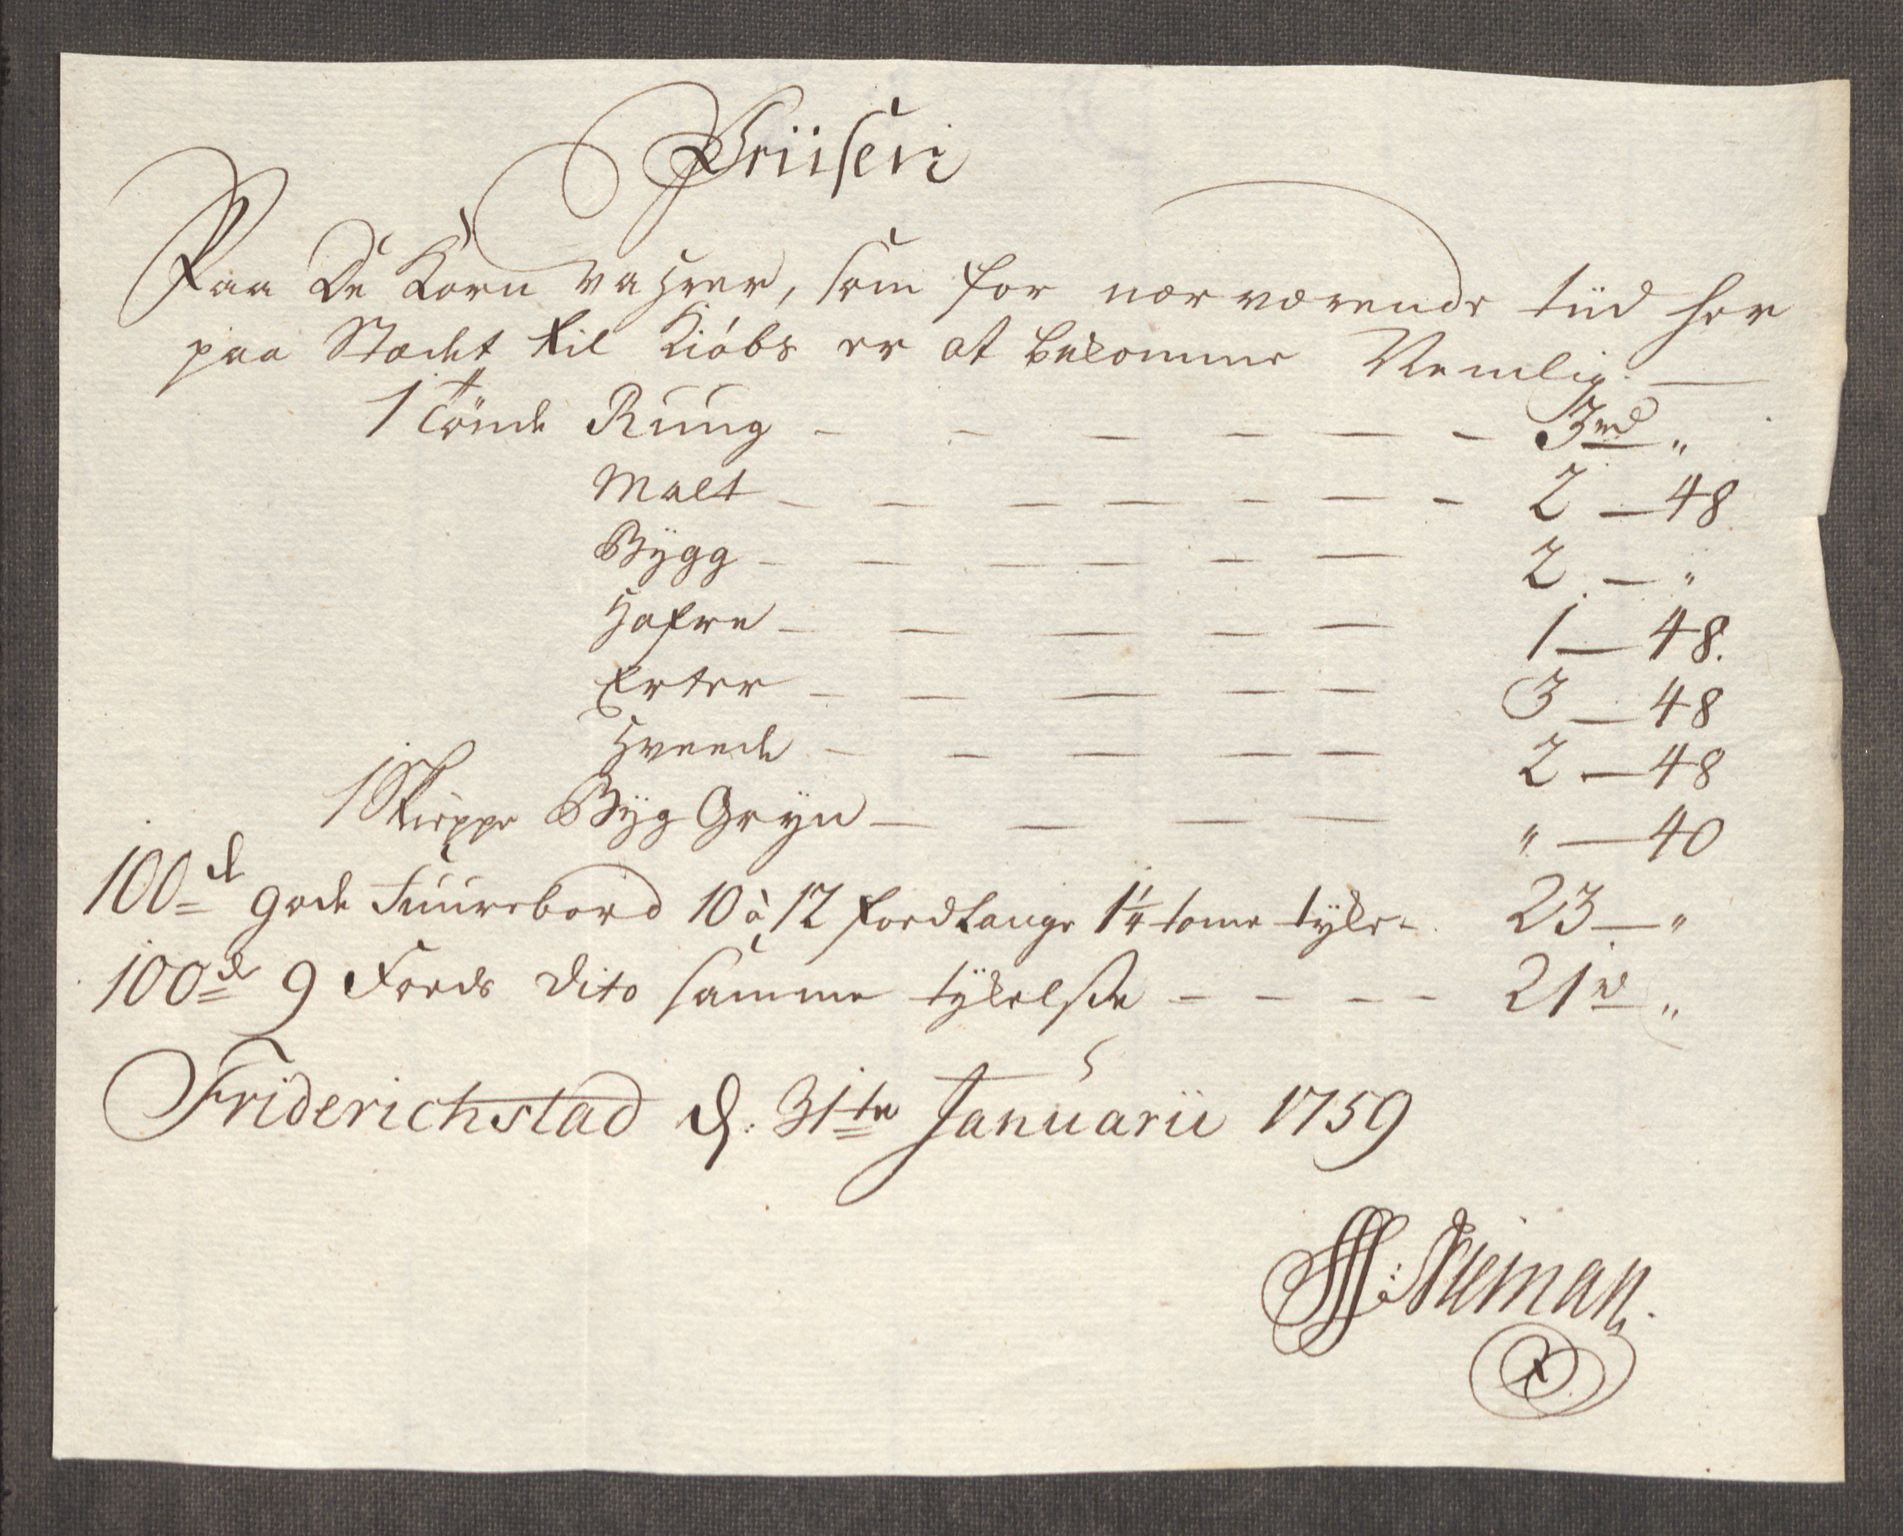 Priisen
Paa De Korn Vahrer, som for nærværende tiid her
paa Stædet til Kiøbs er at bekomme Nemlig —
1 Tønde Rung — — — — — — 3 rd "
Malt — — — — — — — 2 — 48
Bÿgg — — — — — — 2 — "
Hafre — — — — — 1 — 48.
Erter — — — — — 3 — 48
Hveede — — — — — 2 — 48
1 Skieppe Bÿg Grÿn — — — — " — 40
100de gode Fuurebord 10 à 12 foed Lange 1 1/4 tome tÿke - 23 — "
100de 9 Foeds dito samme tÿkelsse — — — — 21 rd "
Friderichstad d: 31te Januarii 1759